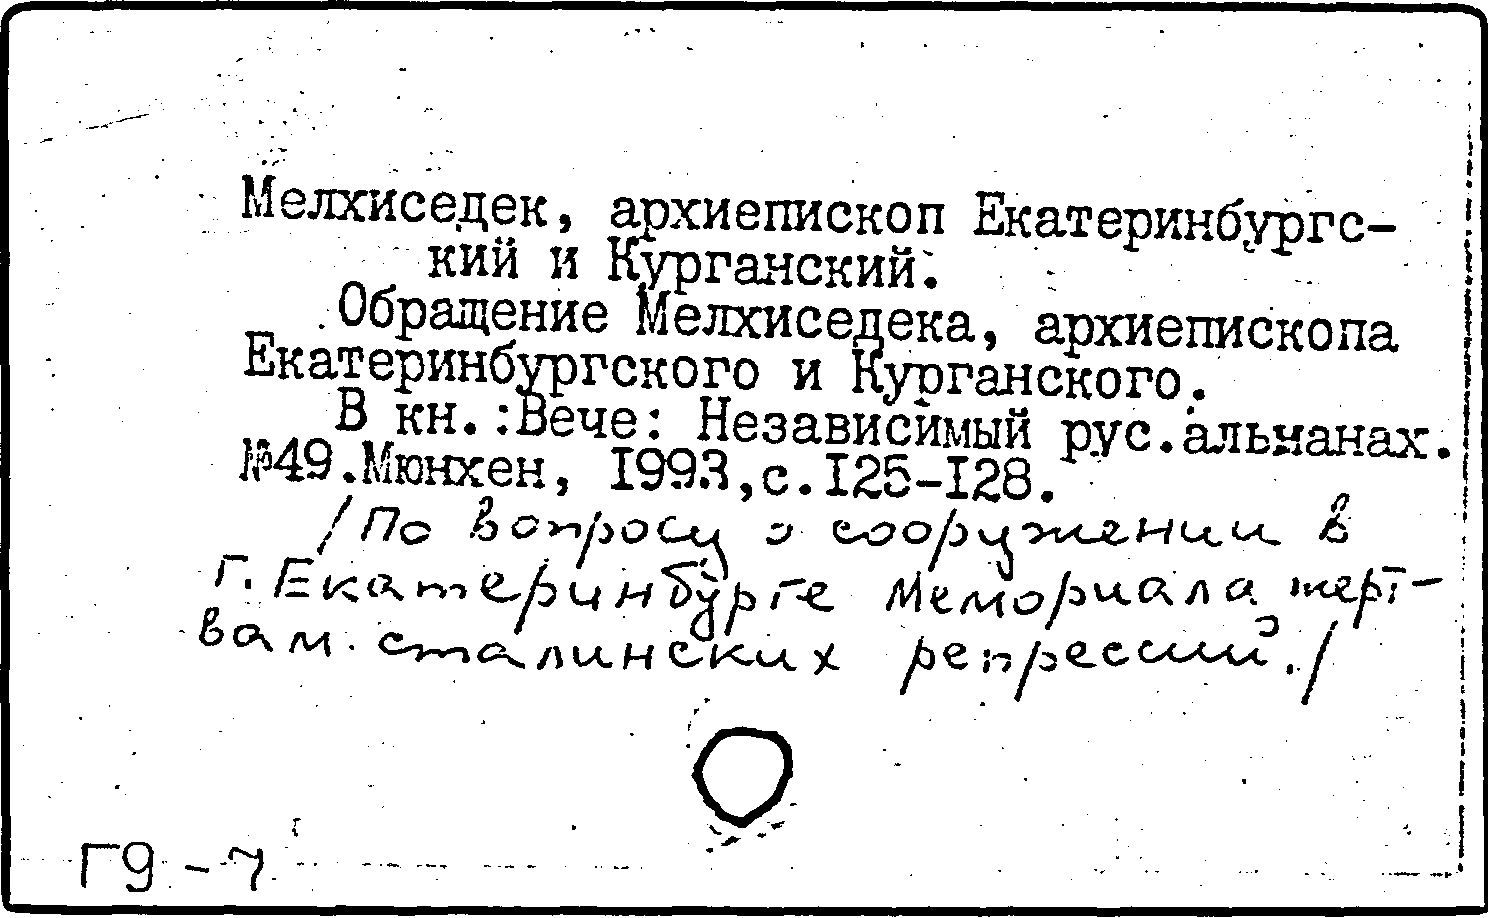 Мелхиседек, архиепископ Екатеринбургс-
кий и Курганский.
Обращение Мелхиседека, архиепископа
Екатеринбургского и Курганского.
В кн.:Вече: Независимый рус.альманах.
№49.Мюнхен, I993,с.I25-I28.
/По вопросу о сооружении в
г. Екатеринбурге Мемориала жерт-
вам сталинских репрессий./
Г9-7